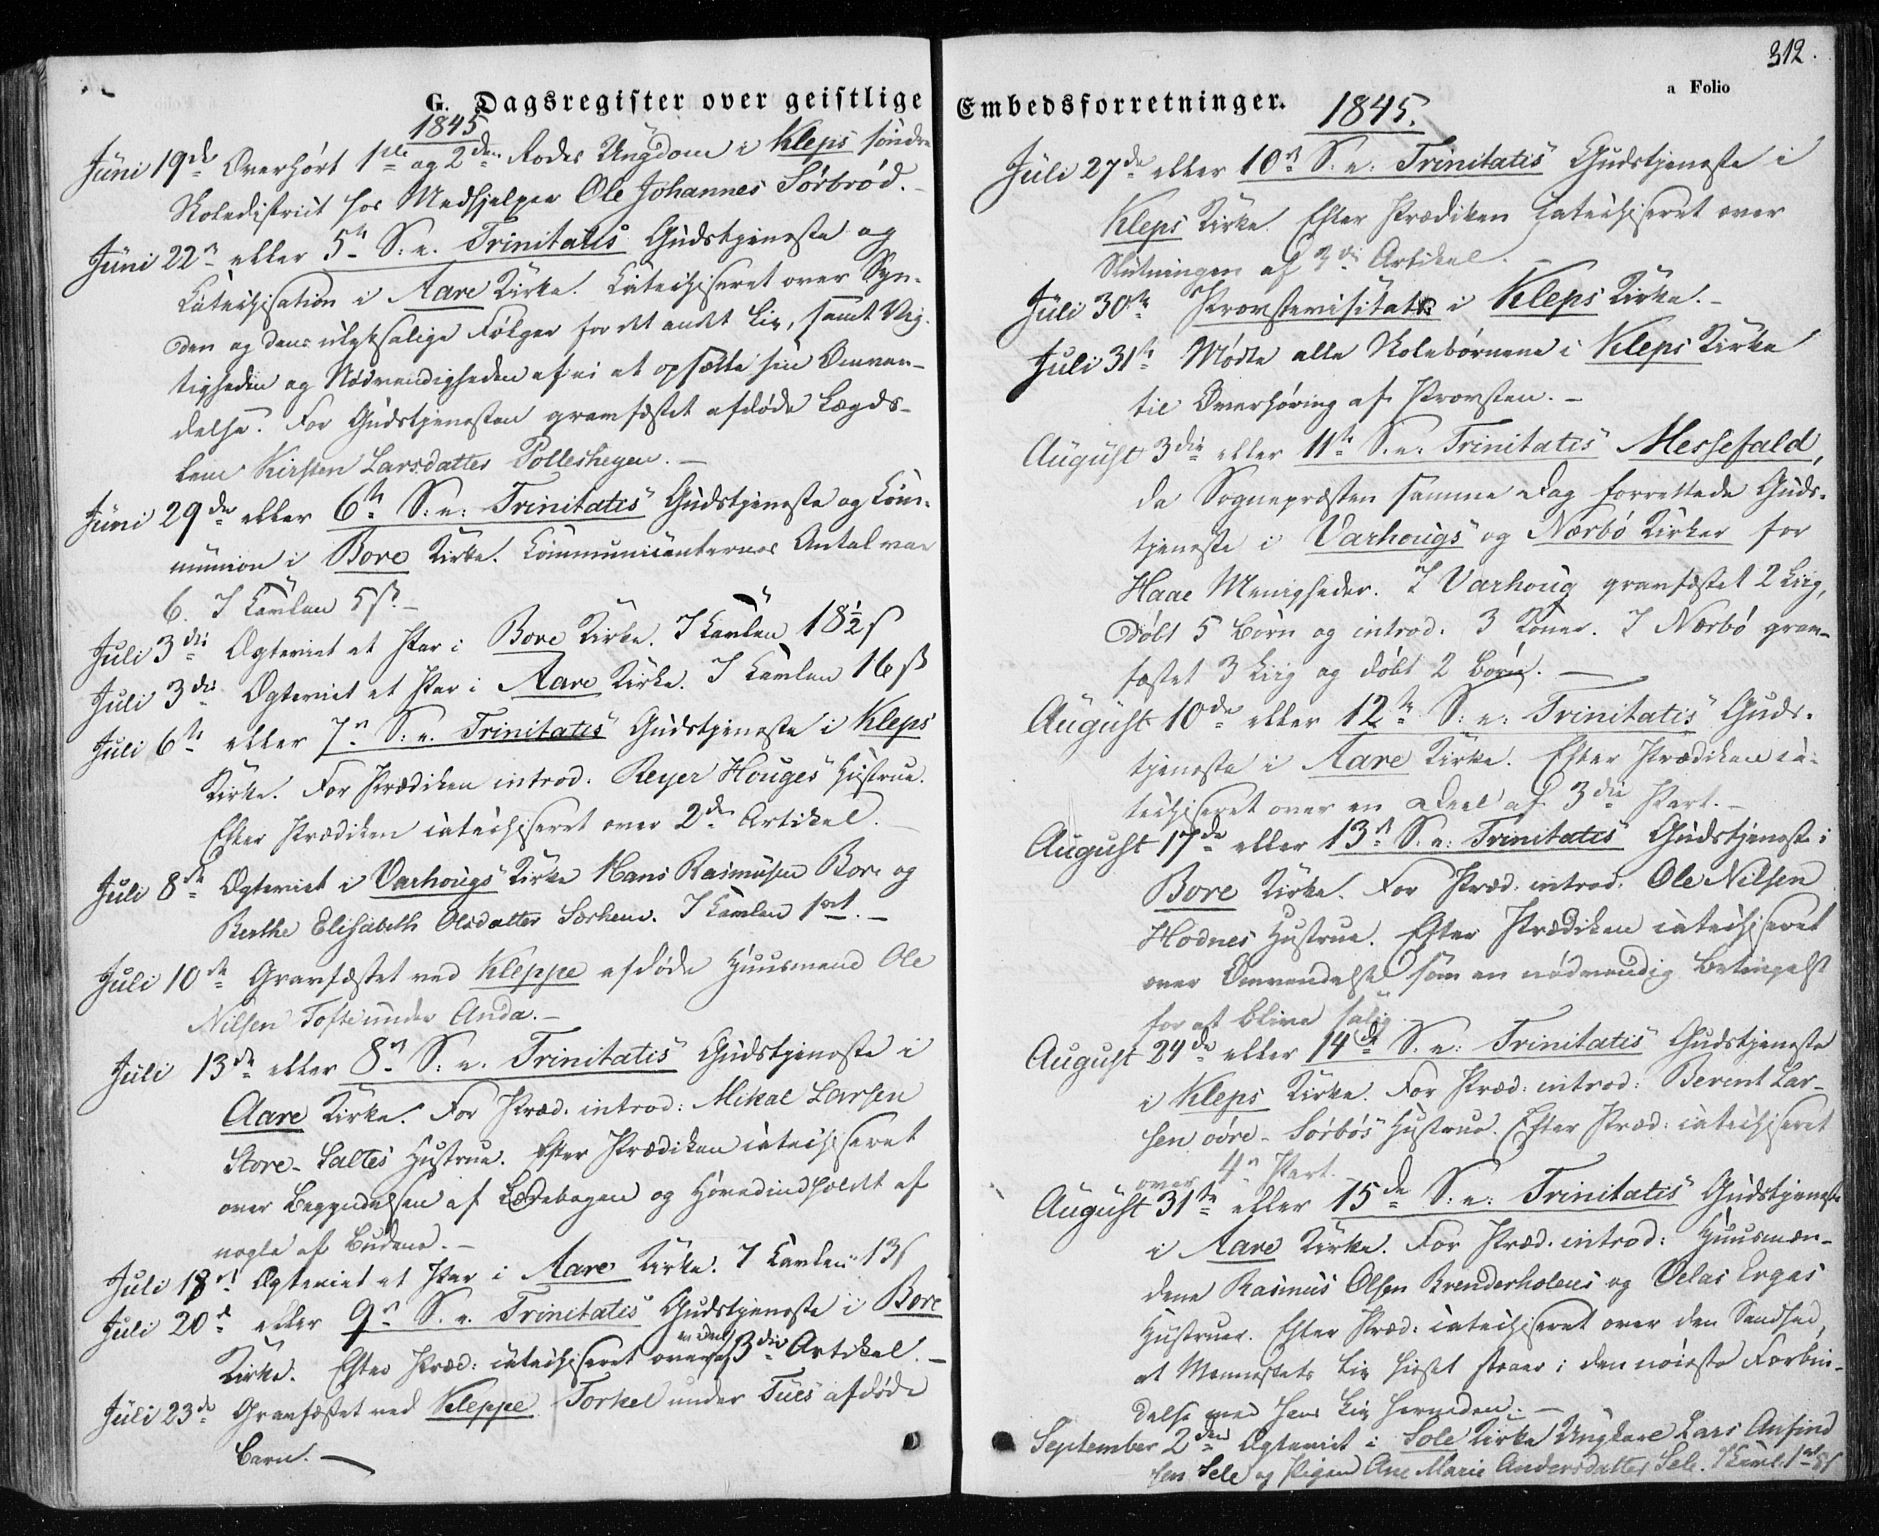 G. Dagsregister over geistlige
1845
Juni 19de Overhört 1ste og 2den Rodes Ungdom i Kleps söndre
Skoledistrict hos Medhjelper Ole Johannes Sörbröd.
Juni 22n eller 5te S. e. Trinitatis Gudstjeneste og
Catechisation i Aare Kirke. Catechiseret over Syn-
den og dens ulyksalige Fölger for det andet Liv, samt Vig-
tigheden og Nödvendigheden af ei at opsætte sin Omven-
delse. For Gudstjenesten gravfæstet afdöde Lægds-
lem Kirsten Larsdatter Pollesheyen.
Juni 29de eller 6te S. e. Trinitatis Gudstjeneste og Com-
munion i Bore Kirke. Communicanternes Antal var
6. I Tavlen 5 ß.
Juli 3die Ægteviet et Par i Bore Kirke. I Tavlen 18½ ß
Juli 3die Ægteviet et Par i Aare Kirke. I Tavlen 16 ß
Juli 6te eller 7n S. e. Trinitatis Gudstjeneste i Kleps
Kirke. For Prædiken introd. Reyer Houges Hustrue.
Efter Prædiken catechiseret over 2den Artikel.
Juli 8de Ægteviet i Varhougs Kirke Hans Rasmusen Bore og
Berthe Elisabeth Olsdatter Særheim. I Tavlen 1ort.
Juli 10de Gravfæstet ved Kleppe afdöde Huusmand Ole
Nilsen Tofte under Anda.
Juli 13de eller 8n S. e. Trinitatis Gudstjeneste i
Aare Kirke. For Præd. introd: Mikal Larsen
Store-Saltes Hustrue. Efter Prædiken catechiseret
over Begyndelsen af Lærebogen og Hovedindholdet af
nogle af Budene.
Juli 18n Ægteviet et Par i Aare Kirke. I Tavlen 13 ß
Juli 20de eller 9n S. e. Trinitatis Gudstjeneste i Bore
Kirke. Efter Præd: catechiseret over en Deel af 3die Artikel.
Juli 23de Gravfæstet ved Kleppe Torkel under Tues afdöde
Barn.
312.
a Folio
Embedsforretninger.
1845.
Juli 27de eller 10n S. e. Trinitatis Gudstjeneste i
Kleps Kirke. Efter Prædiken catechiseret over
Slutningen af 3die Artikel.
Juli 30te Provstevisitats i Kleps Kirke.
Juli 31te Mödte alle Skolebörnene i Kleps Kirke
til Overhöring af Provsten.
August 3die eller 11te S. e. Trinitatis Messefald,
da Sognepræsten samme Dag forrettede Guds-
tjeneste i Varhougs og Nærbö Kirker for
Haae Menigheder. I Varhoug gravfæstet 2 Liig,
döbt 5 Börn og introd. 3 Koner. I Nærbö grav-
fæstet 3 Liig og döbt 2 Börn.
August 10de eller 12te S. e. Trinitatis Guds-
tjeneste i Aare Kirke. Efter Prædiken ca-
techiseret over en Deel af 3die Part.
August 17de eller 13n S. e. Trinitatis Gudstjeneste i
Bore Kirke. For Præd. introd. Ole Nilsen
Hodnes Hustrue. Efter Prædiken catechiseret
over Omvendelse som en nödvendig Betingelse
for at blive salig.
August 24de eller 14de S. e. Trinitatis Gudstjeneste
i Kleps Kirke. For Præd: introd: Berent Lar-
sen övre-Sörbös Hustrue. Efter Præd: catechiseret
over 4n Part.
August 31te eller 15de S. e. Trinitatis Gudstjeneste
i Aare Kirke. For Præd. introd: Huusmæn-
dene Rasmus Olsen Brenderholens og Velas Ergas
Hustruer. Efter Præd: catechiseret over den Sandhed,
at Menneskets Liv hisset staaer i den nöieste Forbin-
delse med hans Liv herneden.
September 2den Ægteviet i Sole Kirke Ungkarl Lars Anfind
sen Sele og Pigen Ane Marie Andersdatter Sele. I Tavl. 1